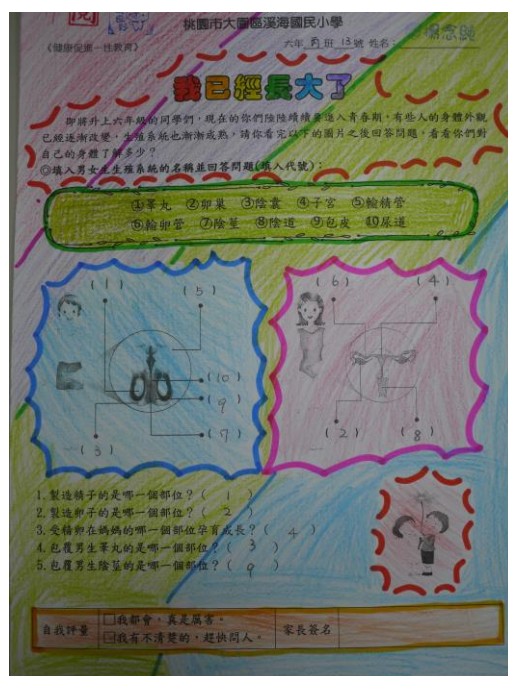 閱
桃園市大園區溪海國民小學
《健康促進—性教育》
六年 丙 班 13 號 姓名：
我已經長大了
即將升上六年級的同學們，現在的你們陸陸續續要進入青春期，有些人的身體外觀
已經逐漸改變，生殖系統也漸漸成熟，請你看完以下的圖片之後回答問題，看看你們對
自己的身體了解多少？
◎填入男女生生殖系統的名稱並回答問題(填入代號)：
①睪丸 ②卵巢 ③陰囊 ④子宮 ⑤輸精管
⑥輸卵管 ⑦陰莖 ⑧陰道 ⑨包皮 ⑩尿道
(1) (5)
(10)
(9)
(7)
(3)
(6) (4)
(2) (8)
1.製造精子的是哪一個部位？( 1 )
2.製造卵子的是哪一個部位？( 2 )
3.受精卵在媽媽的哪一個部位孕育成長？( 4 )
4.包覆男生睪丸的是哪一個部位？( 3 )
5.包覆男生陰莖的是哪一個部位？( 9 )
自我評量
□我都會，真是厲害。
□我有不清楚的，趕快問人。
家長簽名